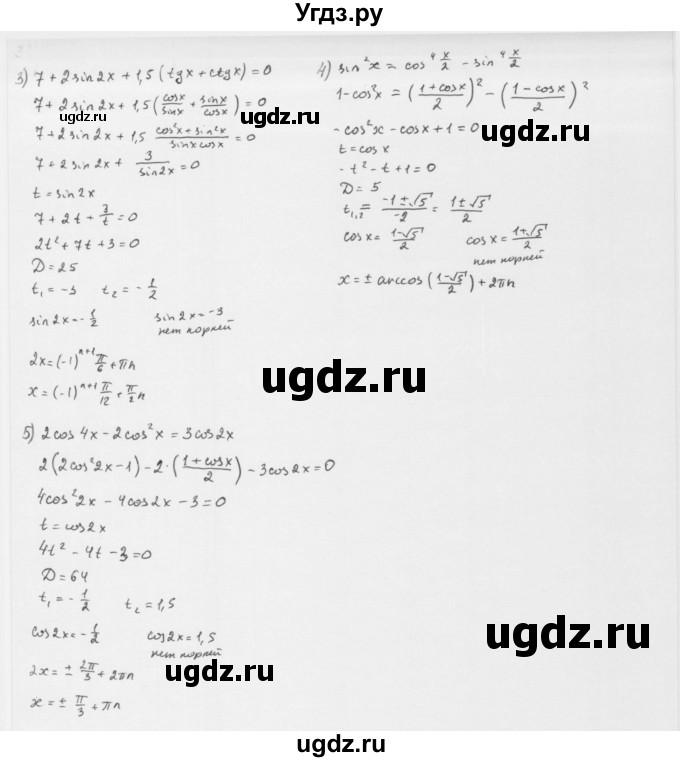 Угдз.ру
3) 7 + 2sin2x + 1,5 (tgx + ctgx) = 0
7 + 2sin2x + 1,5 (cosx/sinx + sinx/cosx) = 0
7 + 2sin2x + 1,5 (cos²x + sin²x)/(sinx cosx) = 0
7 + 2sin2x + 3/sin2x = 0
t = sin2x
7 + 2t + 3/t = 0
2t² + 7t + 3 = 0
D = 25
t₁ = -3 t₂ = -1/2
sin2x = -1/2 sin2x = -3
нет корней
2x = (-1)ⁿ⁺¹ π/6 + πn
x = (-1)ⁿ⁺¹ π/12 + π/2 n
4) sin²x = cos⁴ x/2 - sin⁴ x/2
1 - cos²x = ((1 + cosx)/2)² - ((1 - cosx)/2)²
- cos²x - cosx + 1 = 0
t = cosx
-t² - t + 1 = 0
D = 5
t₁,₂ = (-1 ± √5)/(-2) = (1 ± √5)/2
cosx = (1-√5)/2 cosx = (1+√5)/2
нет корней
x = ± arccos ((1-√5)/2) + 2πn
5) 2cos4x - 2cos²x = 3cos2x
2(2cos²2x - 1) - 2·((1 + cosx)/2) - 3cos2x = 0
4cos²2x - 4cos2x - 3 = 0
t = cos2x
4t² - 4t - 3 = 0
D = 64
t₁ = -1/2 t₂ = 1,5
cos2x = -1/2 cos2x = 1,5
нет корней
2x = ± 2π/3 + 2πn
x = ± π/3 + πn
ugdz.ru
ugdz.ru
ugdz.ru
ugdz.ru
ugdz.ru
ugdz.ru
ugdz.ru
ugdz.ru
ugdz.ru